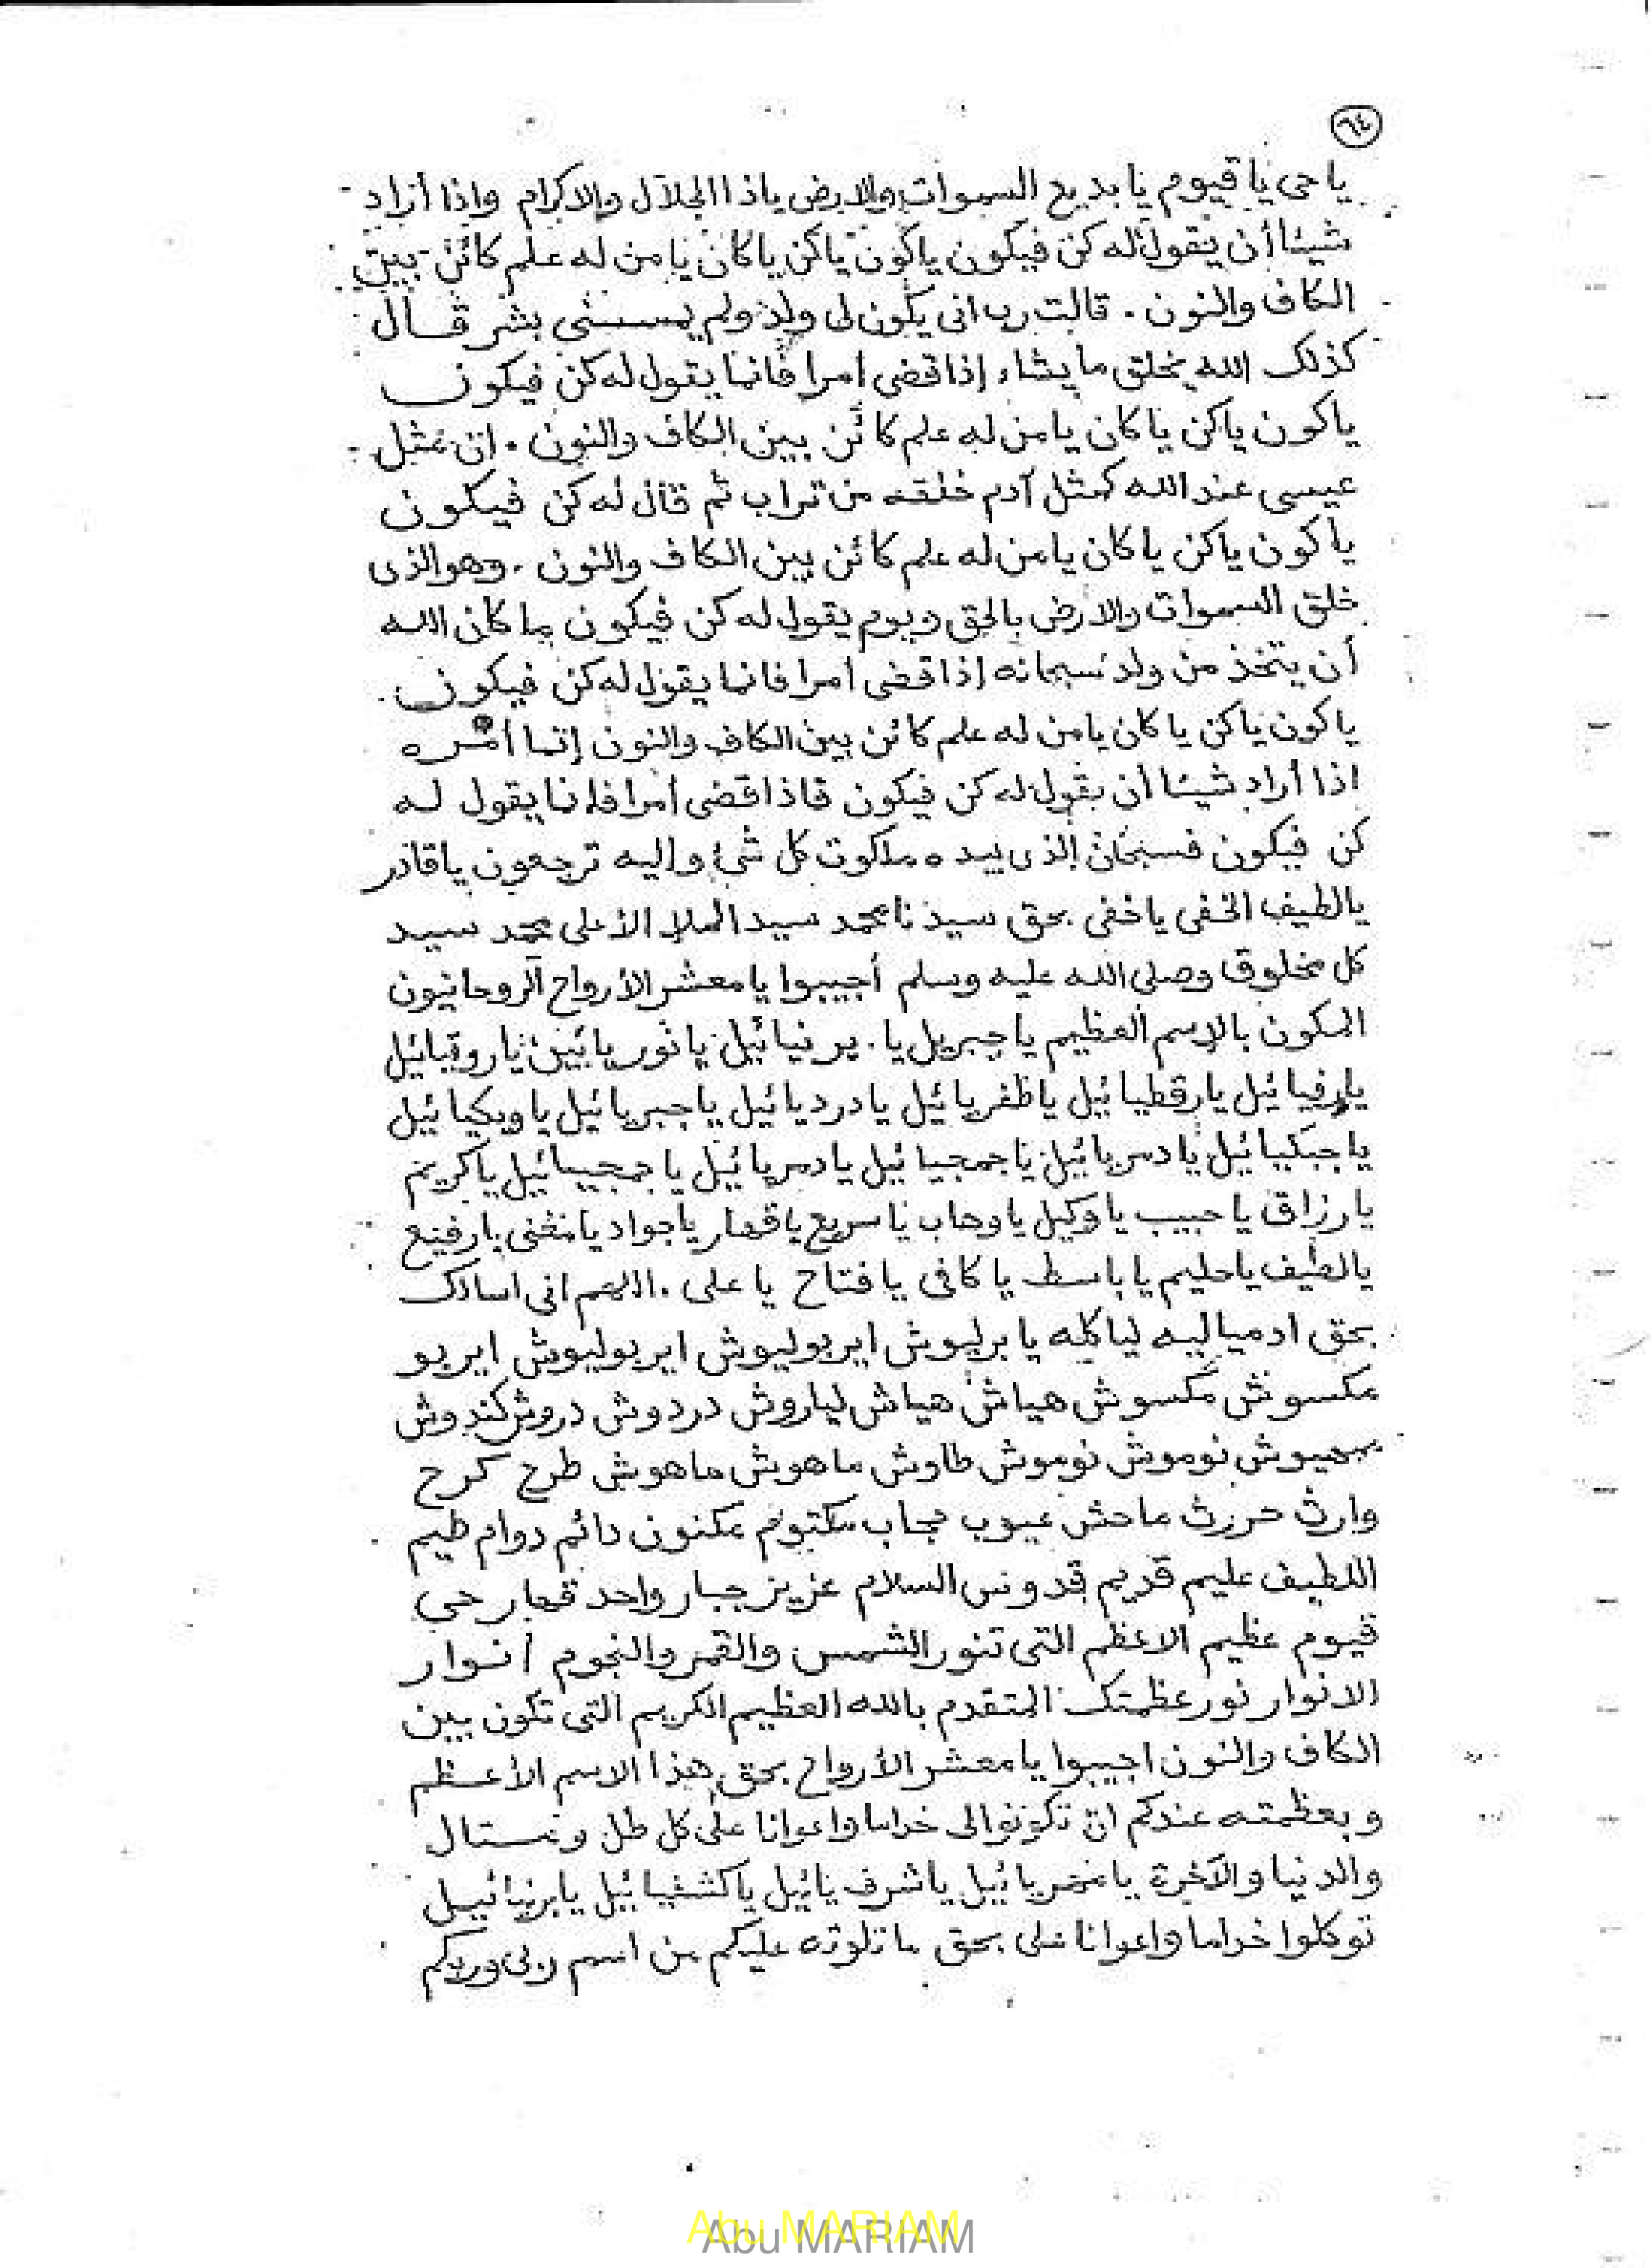 ٦٤
ياحى ياقيوم يا بديع السموات والارض ياذا الجلال والاكرام واذا أراد
شيئا أن يقول له كن فيكون ياكون ياكن ياكان يا من له علم كائن بين
الكاف والنون . قالت رب انى يكون لى ولد ولم يمسسنى بشر قال
كذلك الله يخلق ما يشاء إذا قضى امرا فانما يقول له كن فيكون
ياكون ياكن ياكان يامن له علم كائن بين الكاف والنون . ان مثل
عيسى عند الله كمثل آدم خلقه من تراب ثم قال له كن فيكون
ياكون ياكن ياكان يامن له علم كائن بين الكاف والنون . وهو الذى
خلق السموات والارض بالحق ويوم يقول له كن فيكون ما كان الله
أن يتخذ من ولد سبحانه إذا قضى امرا فانما يقول له كن فيكون .
ياكون ياكن ياكان يامن له علم كائن بين الكاف والنون إنما أمره
اذا أراد شيئا أن يقول له كن فيكون فاذا قضى أمرا فانما يقول له
كن فيكون فسبحان الذى بيده ملكوت كل شئ واليه ترجعون ياقادر
يالطيف الخفى ياخفى بحق سيدنا محمد سيد الملا الأعلى محمد سيد
كل مخلوق وصلى الله عليه وسلم أجيبوا يا معشر الأرواح الروحانيون
المكون بالإسم العظيم ياجبريل يا . يرنيائيل يانوريائين يا روقيائيل
يارفيائيل يارقطيائيل ياظفريائيل يادرديائيل ياجبريائيل ياويكيائيل
ياجبكيائيل يا دمريائيل ياجمجيائيل يادمريائيل ياجمجيائيل ياكريم
يارزاق ياحبيب ياوكيل ياوهاب ياسريع ياقهار ياجواد يامغنى يارفيع
يالطيف ياحليم يا باسط يا كافى يا فتاح يا على . اللهم انى اسالك
بحق ادمياليه لياكله يا برليوش ايربوليوش ايربوليوش ايربو
مكسوش مكسوش هياش هياش لياروش دردوش دروش كندوش
بهيوش نوموش نوموش طاوش ماهوش ماهوش طرح كرح
وارث حررث ماحش عيوب حجاب مكتوم مكنون دائم دوام
اللطيف عليم قديم قدوس السلام عزيز جبار واحد قهار حى
قيوم عظيم الاعظم التى تنور الشمس والقمر والنجوم انوار
الانوار نور عظمتك المتقدم بالله العظيم الكريم التى تكون بين
الكاف والنون اجيبوا يا معشر الأرواح بحق هذا الاسم الأعظم
وبعظمته عندكم ان تكونوا لى خداما واعوانا على كل
والدنيا والآخرة يا ياشرف يائيل ياكشفيائيل يابرنيائييل
توكلوا خداما واعوانا على بحق ما تلوته عليكم من اسم ربى وربكم
Abu MARIAM
Abu MARIAM